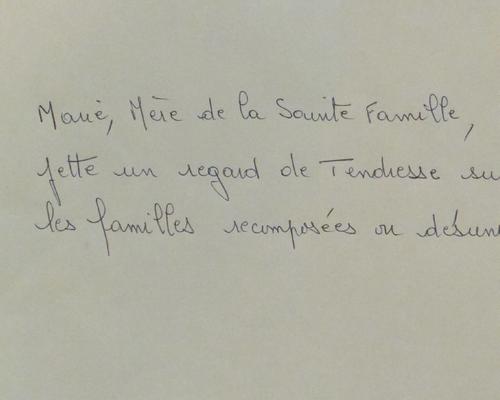 Marie, Mère de la Sainte Famille,
jette un regard de Tendresse su
les familles recomposées ou désun